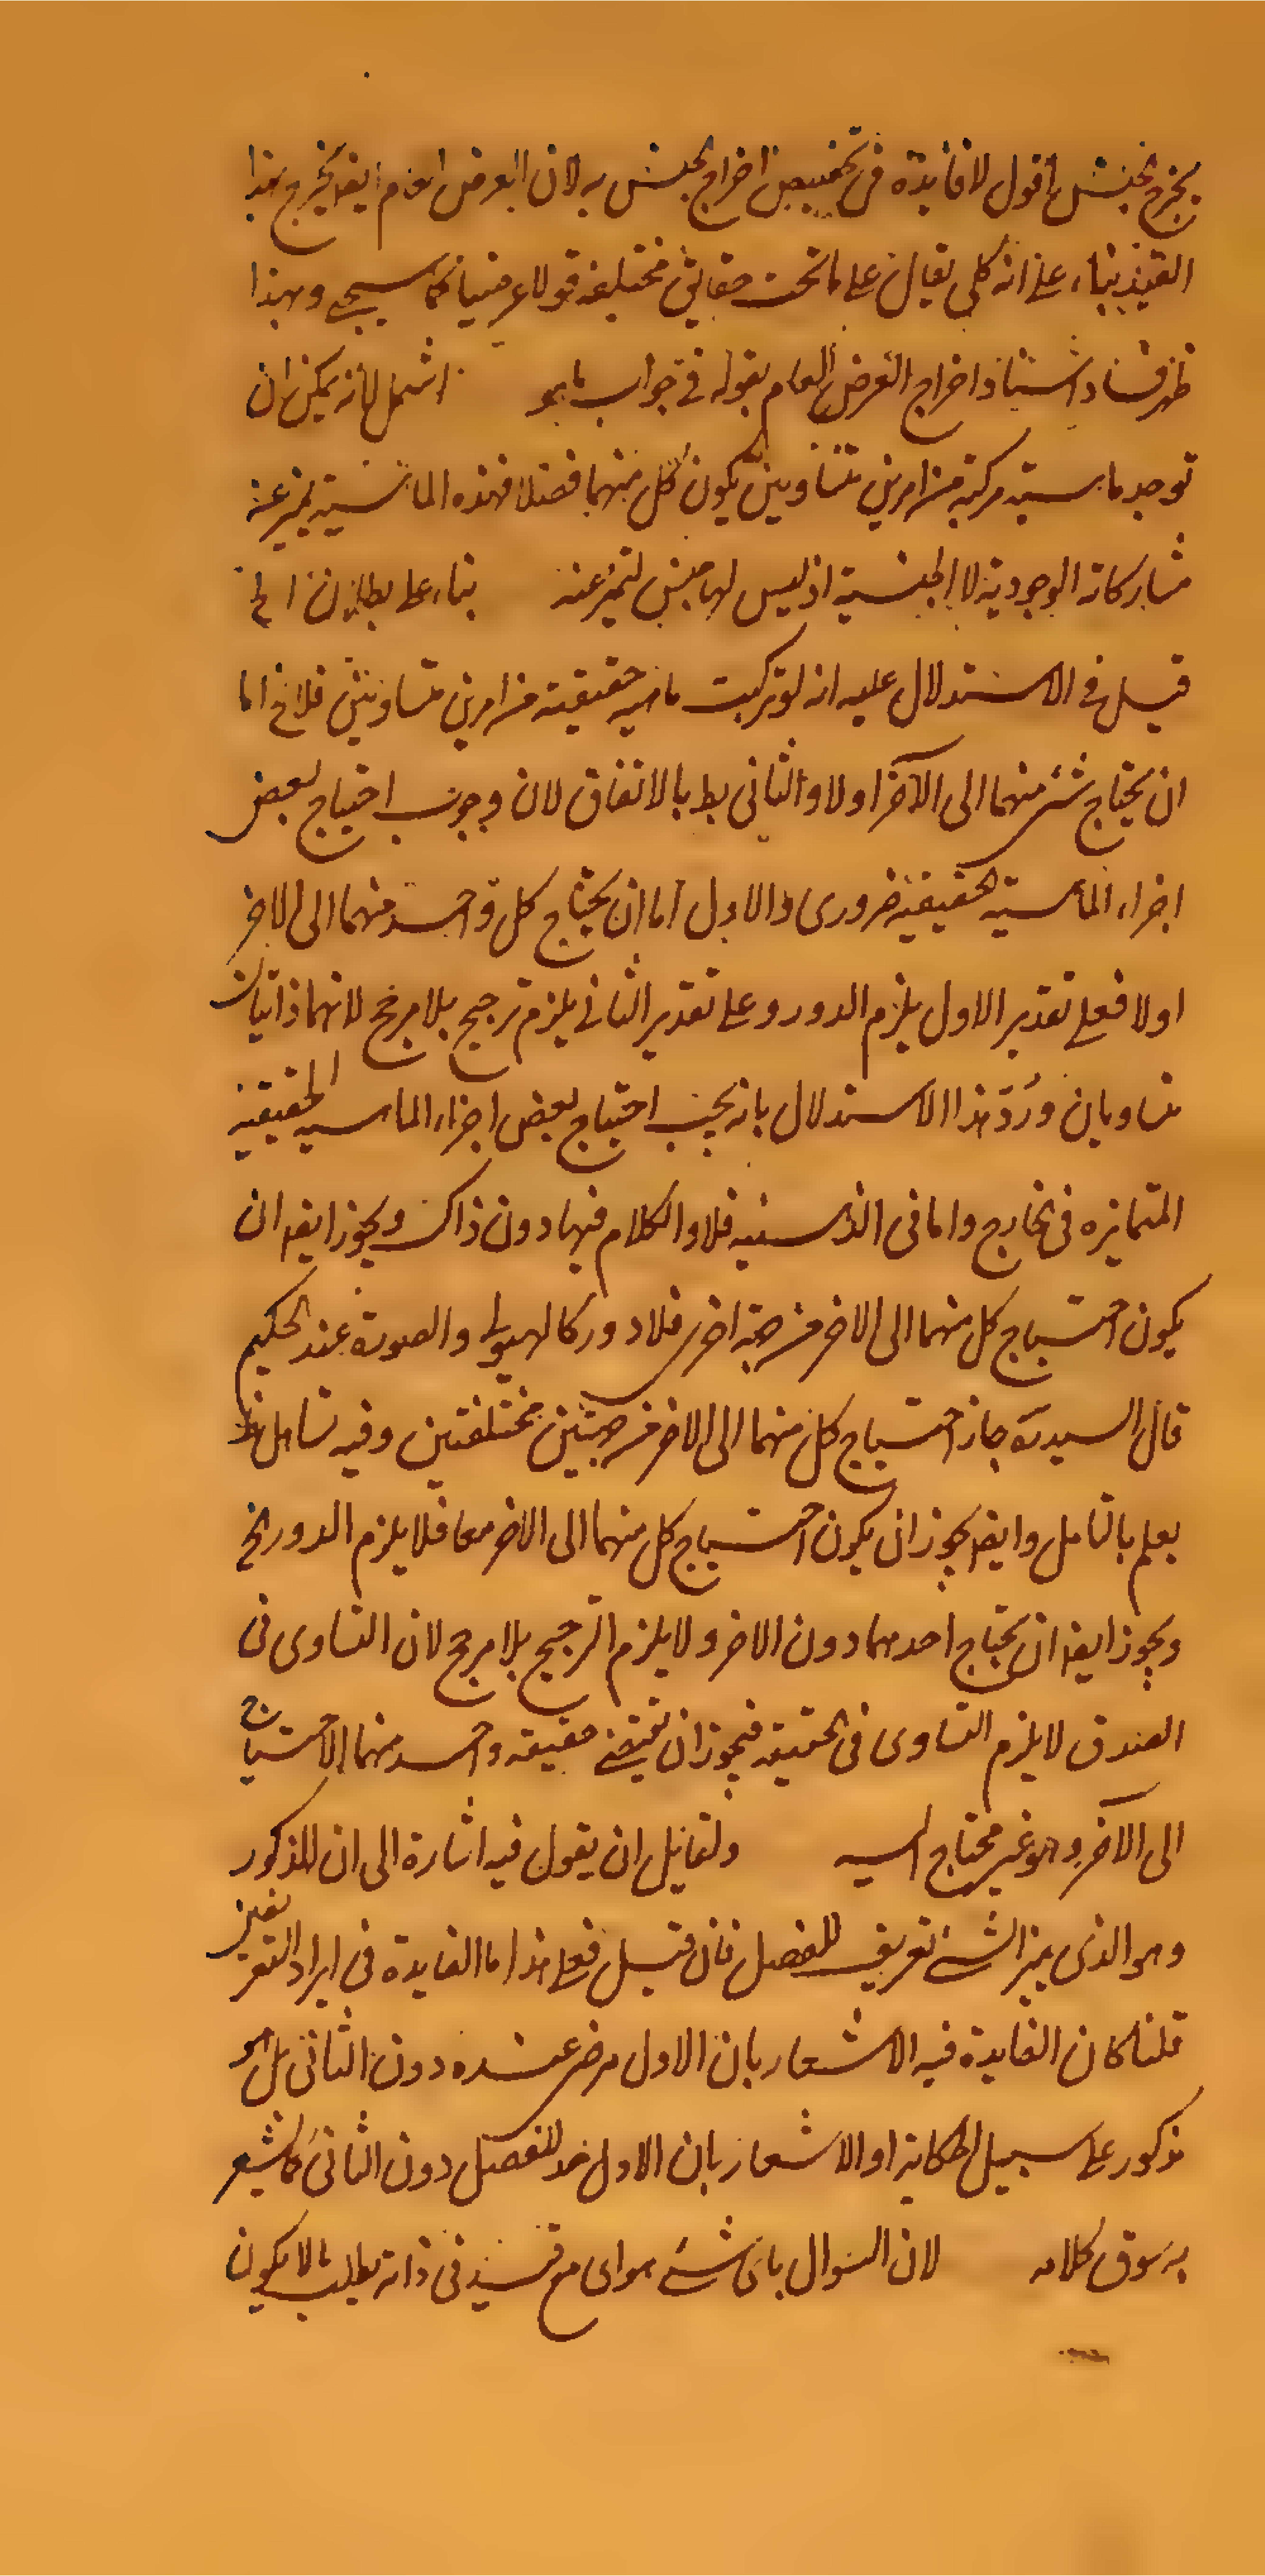 يخرج الجنس اقول لا فايدة فى تخصيص اخراج الجنس به لان العرض العام ايضا يخرج بهذا
القيد بناء على انه كلى يقال على ما تحت حقايق مختلفة قولا عرضيا كما سيجى وبهذا
ظهر فساد اسناد اخراج العرض العام بقوله فى جواب ما هو اشمل لانه يمكن ان
توجد ماهية مركبة من امرين متساويين يكون كل منهما فصلا فهذه الماهية يميز عن
مشاركاته الوجودية لا الجنسية اذ ليس لها جنس لتميز عنه بناء على بطلان الخ
قيل فى الاستدلال عليه انه لو تركبت ماهية حقيقية من امرين متساويين فلا يخ اما
ان يحتاج شئ منهما الى الآخر او لا والثانى بط بالاتفاق لان وجوب احتياج بعض
اجزاء الماهية الحقيقية ضرورى والاول اما ان يحتاج كل واحد منهما الى الاخر
اولا فعلى تقدير الاول يلزم الدور وعلى تقدير الثانى يلزم ترجيح بلا مرجح لانهما ذاتيان
متساويان ورُدّ هذا الاستدلال بانه يجب احتياج بعض اجزاء الماهية الحقيقية
المتمايزه فى الخارج واما فى الذهنيه فلا والكلام فيها دون ذاك ويجوز ايضا ان
يكون احتياج كل منهما الى الاخر من جهة اخرى فلا دور كالهيولى والصورة عند الحكيم
قال السيد جاز احتياج كل منهما الى الاخر من جهتين مختلفتين وفيه تساهل
يعلم بالتامل وايضا يجوز ان يكون احتياج كل منهما الى الاخر معا فلا يلزم الدور الخ
ويجوز ايضا ان يحتاج احدهما دون الاخر ولا يلزم الترجيح بلا مرجح لان التساوى فى
الصدق لا يلزم التساوى فى الحقيقة فيجوز ان تقتضى حقيقة واحد منهما الاحتياج
الى الآخر وهو غير محتاج اليه ولقايل ان يقول فيه اشارة الى ان المذكور
وهو الذى يميز الشئ تعريف للفصل فان قيل فعلى هذا ما الفايدة فى ايراد التعريفين
قلنا كان الفايدة فيه الاشعار بان الاول مرضى عنده دون الثانى بل هو
مذكور على سبيل الحكاية او الاشعار بان الاول حد للفصل دون الثانى كما يشعر
به سوق كلامه لان السوال باى شئ هو اى مع قيد فى ذاته يطلب بها ما لا يكون